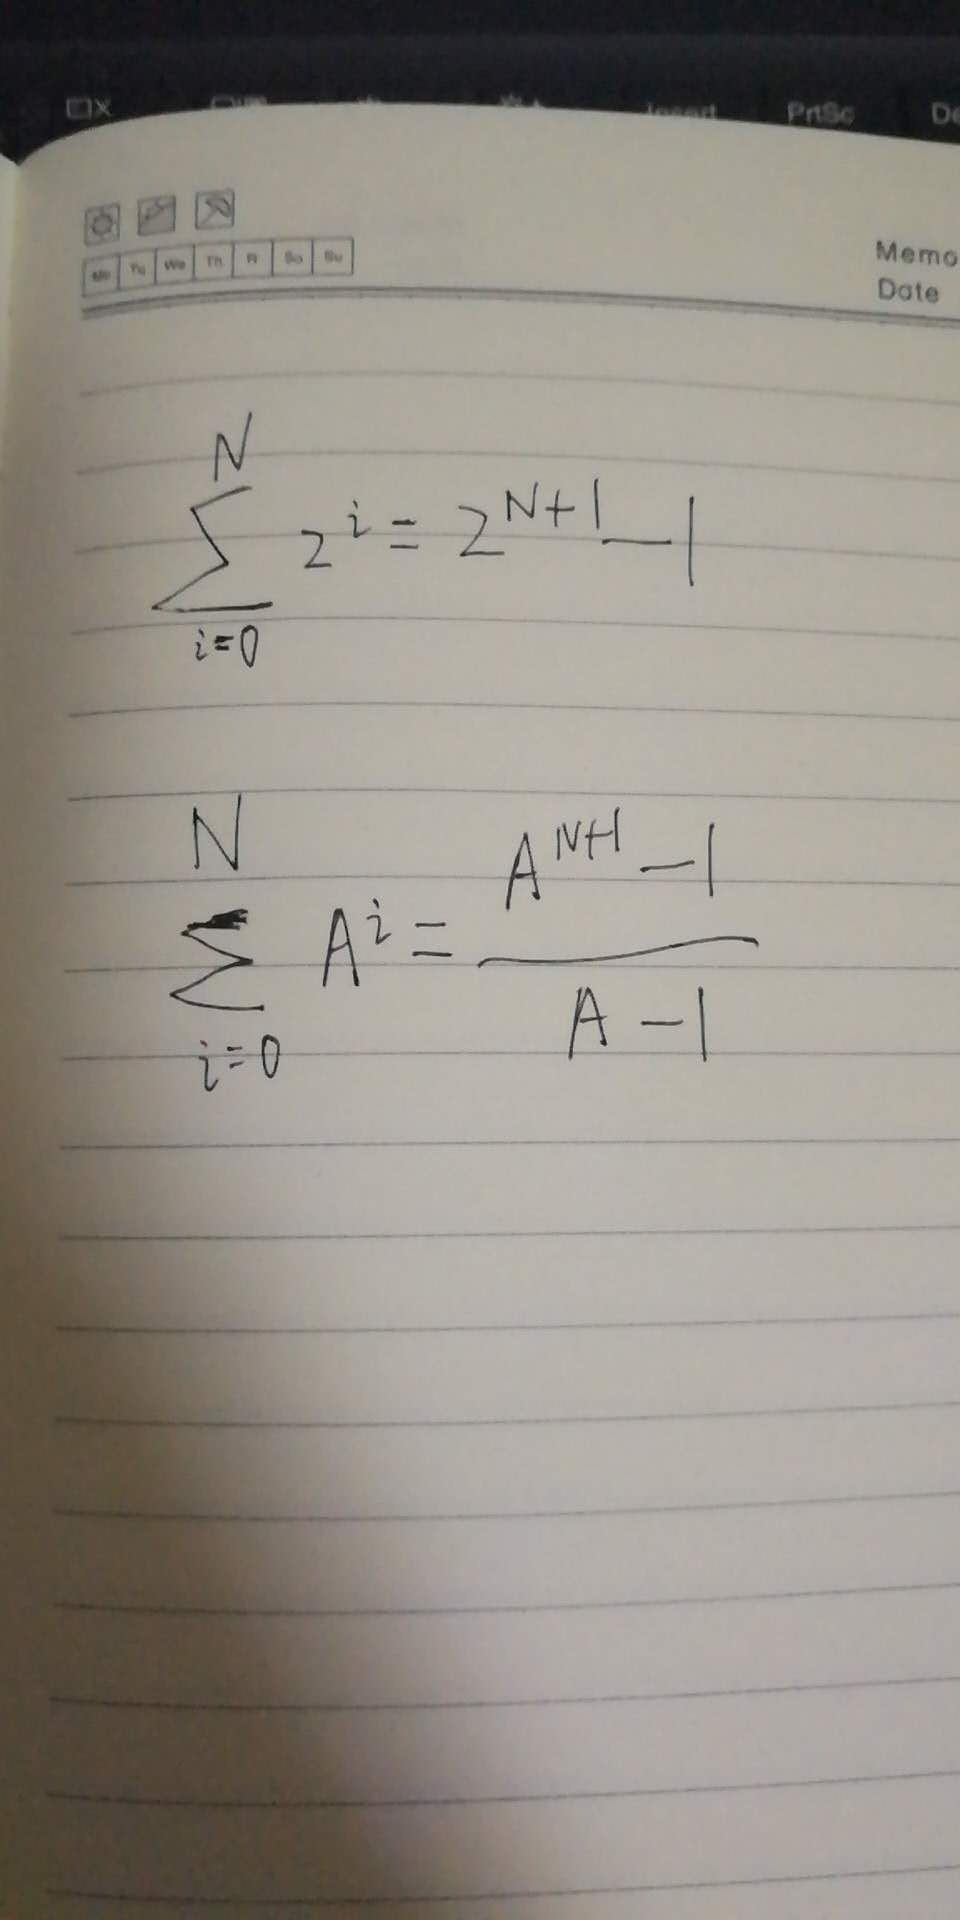 Insert PrtSc
Mo Tu We Th Fr Sa Su
Memo
Date
N
∑ 2^i = 2^{N+1} - 1
i=0
N
∑ A^i = \frac{A^{N+1} - 1}{A - 1}
i=0